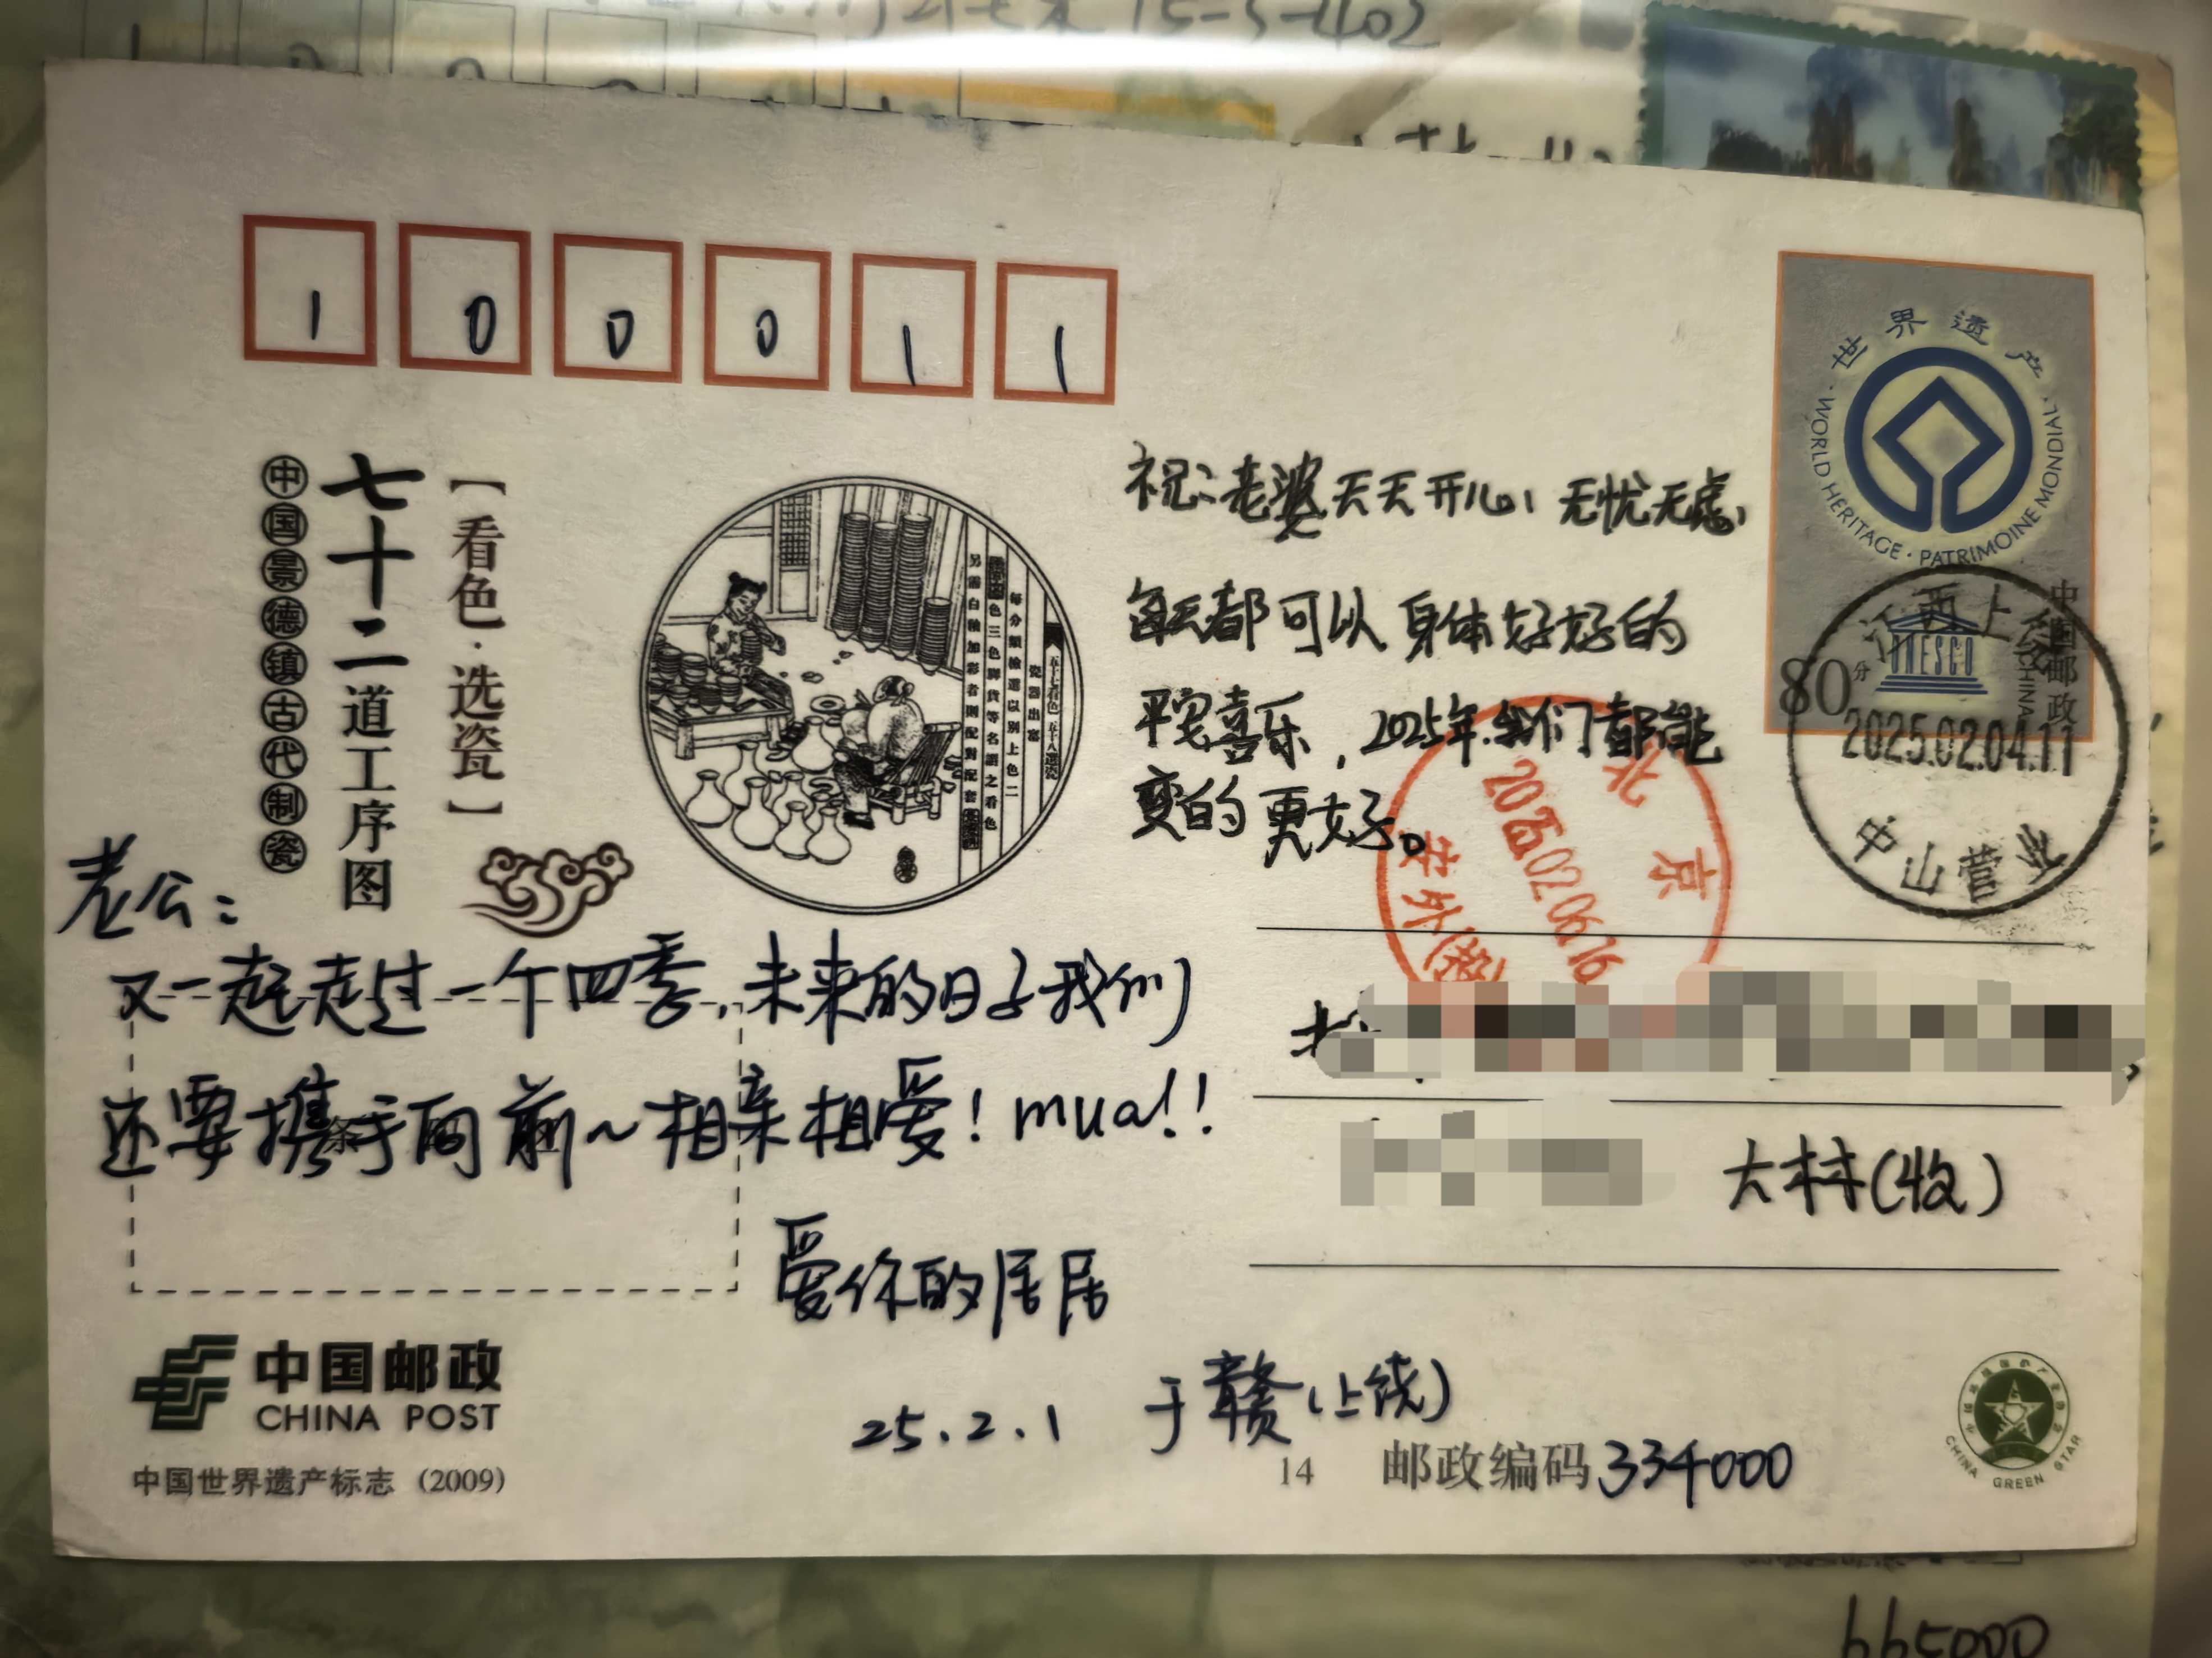 15-3-402
100011
中国景德镇古代制瓷
七十二道工序图
【看色·选瓷】
世界遗产
·WORLD HERITAGE · PATRIMOINE MONDIAL·
UNESCO
80分
中国邮政
CHINA
江西上饶
2025.02.04.11
中山营业
祝：老婆天天开心，无忧无虑，
每天都可以身体好好的
平安喜乐，2025年我们都能
变的更好。
北京
2025.02.06.16
安外
老公：
又一起走过一个四季，未来的日子我们
还要携手向前～相亲相爱！mua！！
爱你的居居
25.2.1 于赣（上饶）
大林（收）
中国邮政
CHINA POST
中国世界遗产标志（2009）
14
邮政编码 334000
CHINA GREEN STAR
665000